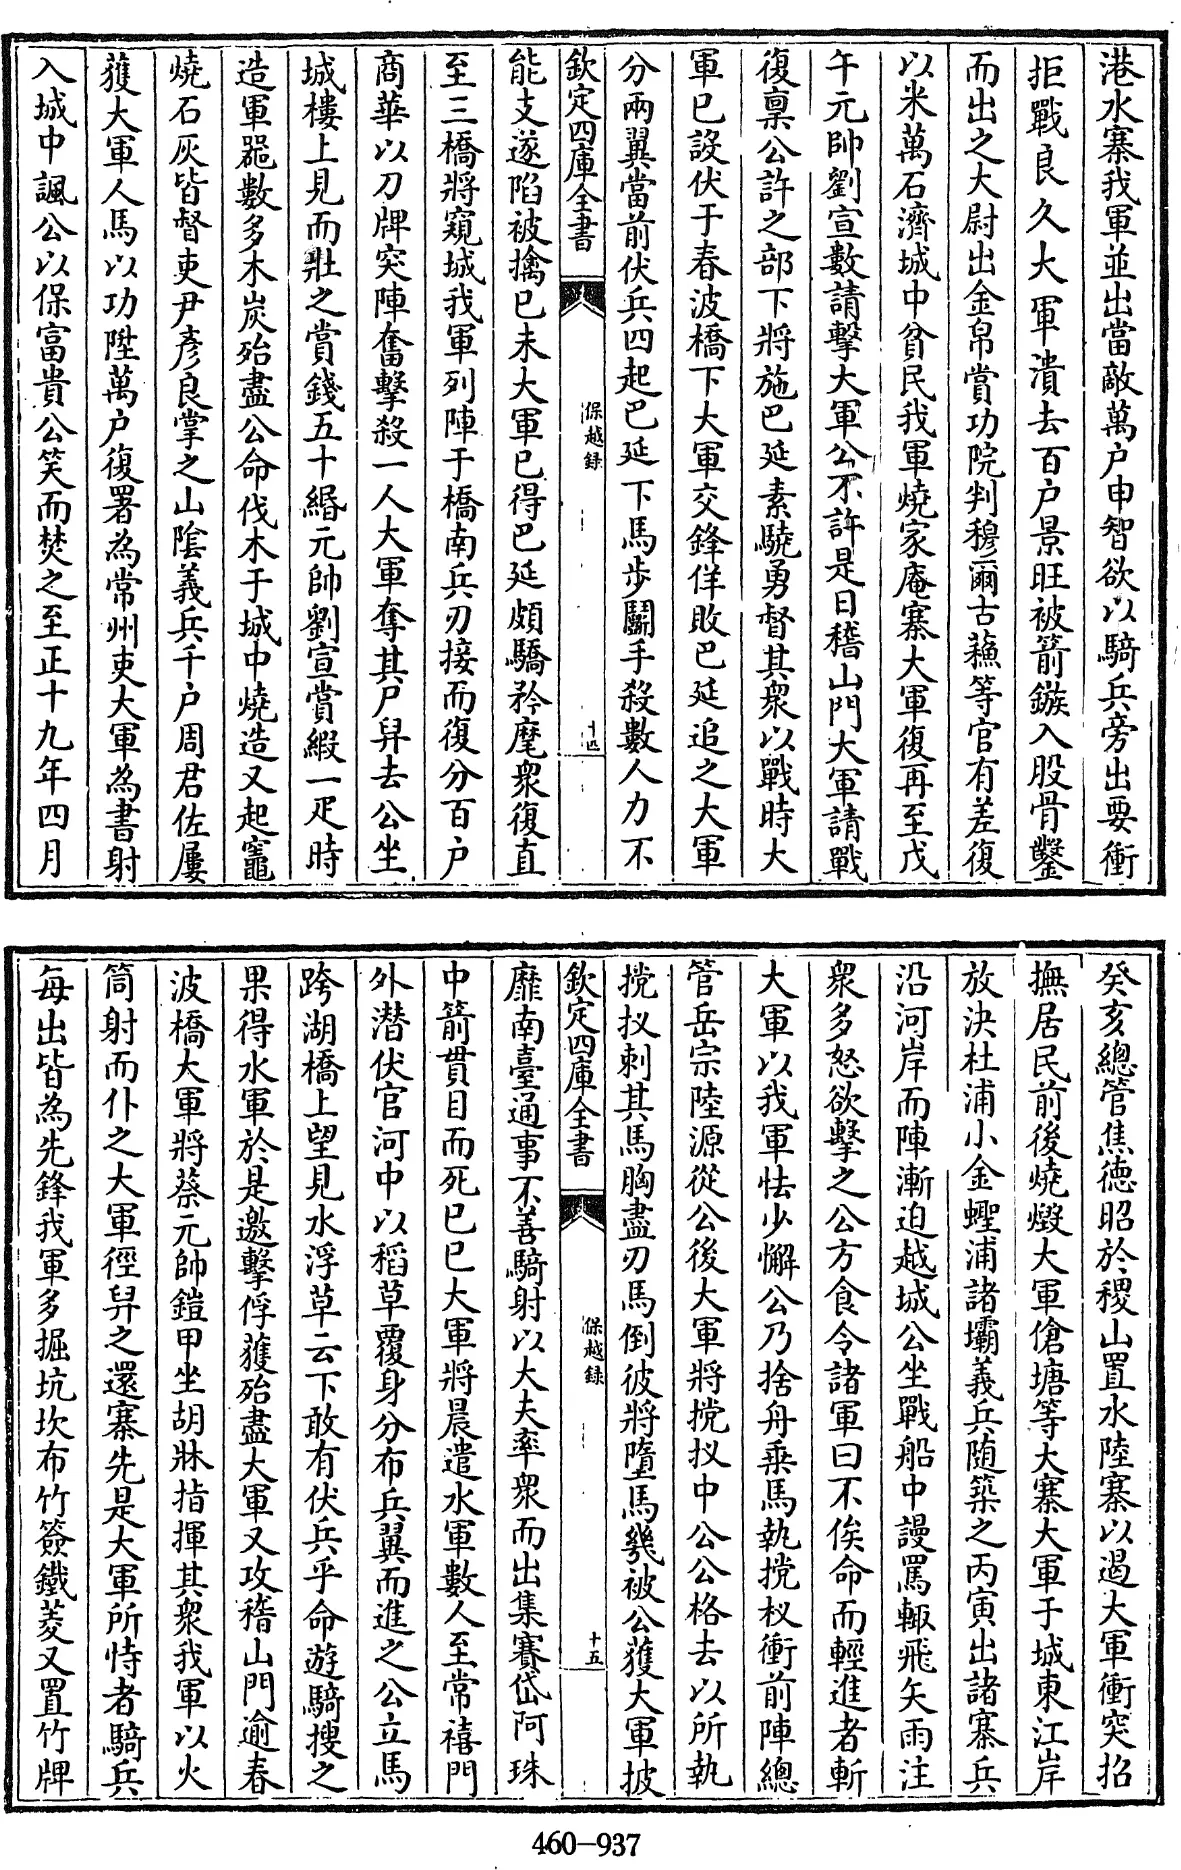 港水寨我軍並出當敵萬户申智欲以騎兵旁出要衝
拒戰良久大軍潰去百户景旺被箭鏃入股骨鑿
而出之大尉出金帛賞功院判穆爾古蘓等官有差復
以米萬石濟城中貧民我軍燒家庵寨大軍復再至戊
午元帥劉宣數請擊大軍公不許是日稽山門大軍請戰
復稟公許之部下將施巴延素驍勇督其衆以戰時大
軍已設伏于春波橋下大軍交鋒佯敗巴延追之大軍
分兩翼當前伏兵四起巴延下馬步鬭手殺數人力不
欽定四庫全書
保越錄
十四
能支遂陷被擒已未大軍已得巴延頗驕矜麾衆復直
至三橋將窺城我軍列陣于橋南兵刃接而復分百户
商華以刀牌突陣奮擊殺一人大軍奪其尸舁去公坐
城樓上見而壯之賞錢五十緡元帥劉宣賞緞一疋時
造軍噐數多木炭殆盡公命伐木于城中燒造又起竈
燒石灰皆督吏尹彥良掌之山隂義兵千户周君佐屢
獲大軍人馬以功陞萬户復署為常州吏大軍為書射
入城中諷公以保富貴公笑而焚之至正十九年四月
癸亥總管焦德昭於稷山置水陸寨以遏大軍衝突招
撫居民前後燒燬大軍傖塘等大寨大軍于城東江岸
放決杜浦小金蟶浦諸壩義兵随築之丙寅出諸寨兵
沿河岸而陣漸迫越城公坐戰船中謾罵輙飛矢雨注
衆多怒欲擊之公方食令諸軍曰不俟命而輕進者斬
大軍以我軍怯少懈公乃捨舟乗馬執攩杈衝前陣總
管岳宗陸源從公後大軍將攩杈中公公格去以所執
攩杈刺其馬胸盡刃馬倒彼將墮馬幾被公獲大軍披
欽定四庫全書
保越錄
十五
靡南臺通事不善騎射以大夫率衆而出集賽岱阿珠
中箭貫目而死已巳大軍將晨遣水軍數人至常禧門
外潛伏官河中以稻草覆身分布兵翼而進之公立馬
跨湖橋上望見水浮草云下敢有伏兵乎命遊騎搜之
果得水軍於是邀擊俘獲殆盡大軍又攻稽山門逾春
波橋大軍將蔡元帥鎧甲坐胡牀指揮其衆我軍以火
筒射而仆之大軍徑舁之還寨先是大軍所恃者騎兵
每出皆為先鋒我軍多掘坑坎布竹簽鐵菱又置竹牌
460-937